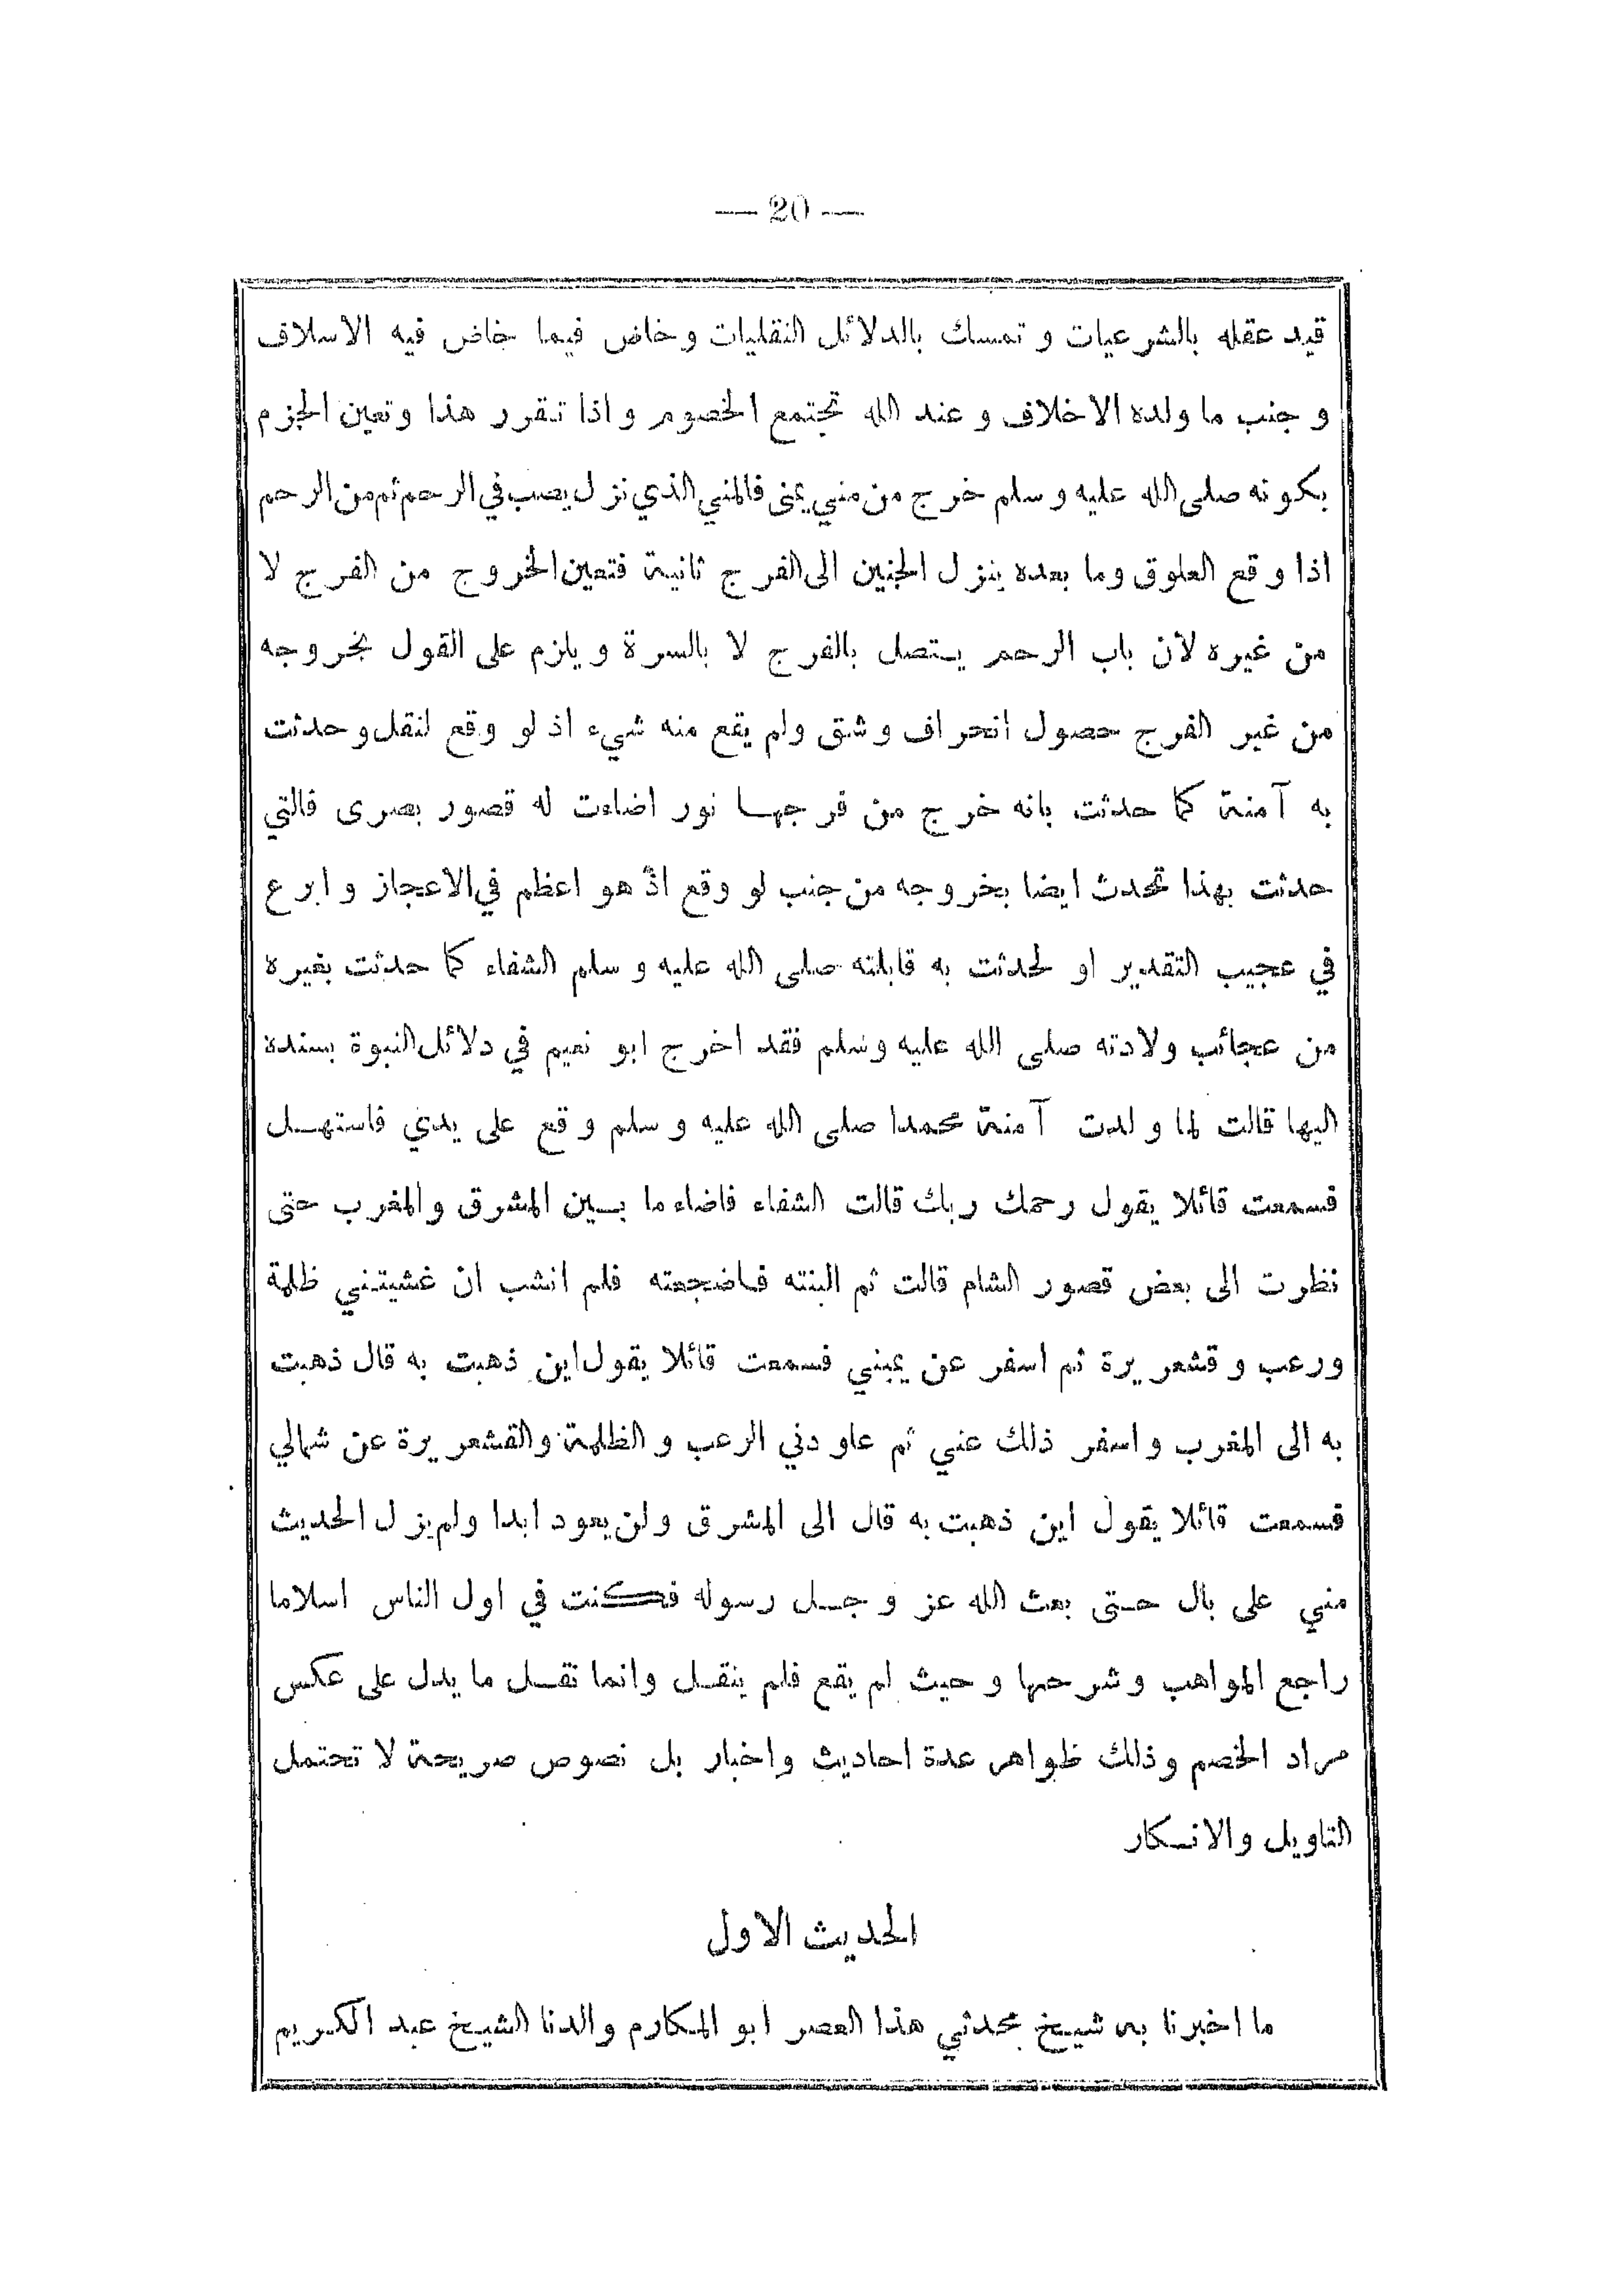 — 20 —
قيد عقله بالشرعيات وتمسك بالدلائل النقليات وخاض فيما خاض فيه الاسلاف
وجنب ما ولده الاخلاف وعند الله تجتمع الخصوم واذا تقرر هذا وتعين الجزم
بكونه صلى الله عليه وسلم خرج من مني يمنى فالمني الذي نزل يصب في الرحم ثم من الرحم
اذا وقع العلوق وما بعده ينزل الجنين الى الفرج ثانية فتعين الخروج من الفرج لا
من غيره لأن باب الرحم يتصل بالفرج لا بالسرة ويلزم على القول بخروجه
من غير الفرج حصول انحراف وشق ولم يقع منه شيء اذ لو وقع لنقل وحدثت
به آمنة كما حدثت بانه خرج من فرجها نور اضاءت له قصور بصرى فالتي
حدثت بهذا تحدث ايضا بخروجه من جنب لو وقع اذ هو اعظم في الاعجاز وابرع
في عجيب التقدير او لحدثت به قابلته صلى الله عليه وسلم الشفاء كما حدثت بغيره
من عجائب ولادته صلى الله عليه وسلم فقد اخرج ابو نعيم في دلائل النبوة بسنده
اليها قالت لما ولدت آمنة محمدا صلى الله عليه وسلم وقع على يدي فاستهل
فسمعت قائلا يقول رحمك ربك قالت الشفاء فاضاء ما بين المشرق والمغرب حتى
نظرت الى بعض قصور الشام قالت ثم البنته فاضجعته فلم انشب ان غشيتني ظلمة
ورعب وقشعريرة ثم اسفر عن يميني فسمعت قائلا يقول اين ذهبت به قال ذهبت
به الى المغرب واسفر ذلك عني ثم عاودني الرعب والظلمة والقشعريرة عن شمالي
فسمعت قائلا يقول اين ذهبت به قال الى المشرق ولن يعود ابدا ولم يزل الحديث
مني على بال حتى بعث الله عز وجل رسوله فكنت في اول الناس اسلاما
راجع المواهب وشرحها وحيث لم يقع فلم ينقل وانما نقل ما يدل على عكس
مراد الخصم وذلك ظواهر عدة احاديث واخبار بل نصوص صريحة لا تحتمل
التاويل والانكار
الحديث الاول
ما اخبرنا به شيخ محدثي هذا العصر ابو المكارم والدنا الشيخ عبد الكريم